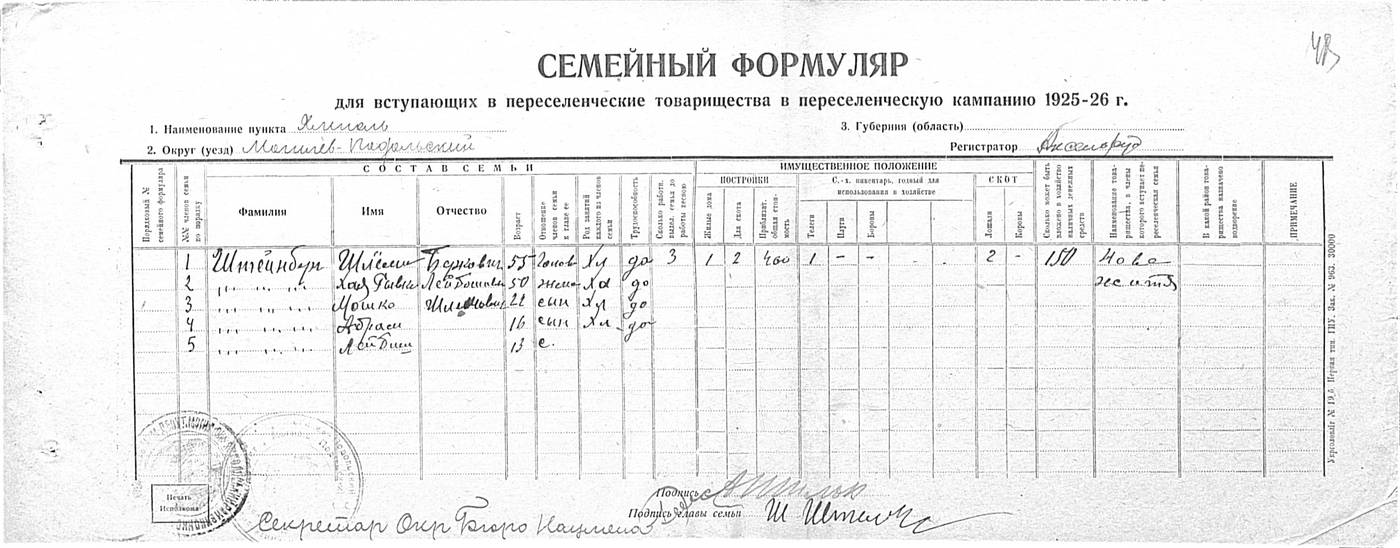 СЕМЕЙНЫЙ ФОРМУЛЯР
для вступающих в переселенческие товарищества в переселенческую кампанию 1925-26 г.
1. Наименование пункта
3. Губерния (область)
2. Округ (уезд) Могилев-Подольский
Регистратор
СОСТАВ СЕМЬИ
ИМУЩЕСТВЕННОЕ ПОЛОЖЕНИЕ
ПОСТРОЙКИ
С.-х. инвентарь, годный для использования в хозяйстве
СКОТ
Порядковый № семейного формуляра
№№ членов семьи по порядку
Фамилия
Имя
Отчество
Возраст
Отношение членов семьи к главе ее
Род занятий каждого из членов семьи
Трудоспособность
Сколько работн. выдел. семья до работы весною
Жилые дома
Для скота
Приблизит. общая стоимость
Телеги
Плуги
Бороны
Лошади
Коровы
Сколько может быть вложено в хозяйство наличных денежных средств
Наименование товарищества, в члены которого вступает переселенческая семья
В какой район товарищества назначено водворение
ПРИМЕЧАНИЕ
1 Штейнберг Шлема Беркович 55 голов Хл до 3 1 2 400 1 - - 2 - 150 Нове
2 " " " Хая Ривка 50 жена Хл до життя
3 " " " Мошко 22 сын Хл до
4 " " " Абрам 16 сын Хл до
5 " " " Лейбиш 13 с.
Укрголовліт № 19,б. Перша тип. ГПУ. Зак. № 963. 30000
Печать Исполкома
Подпись
Подпись главы семьи
Секретар Окр Бюро Нацмена